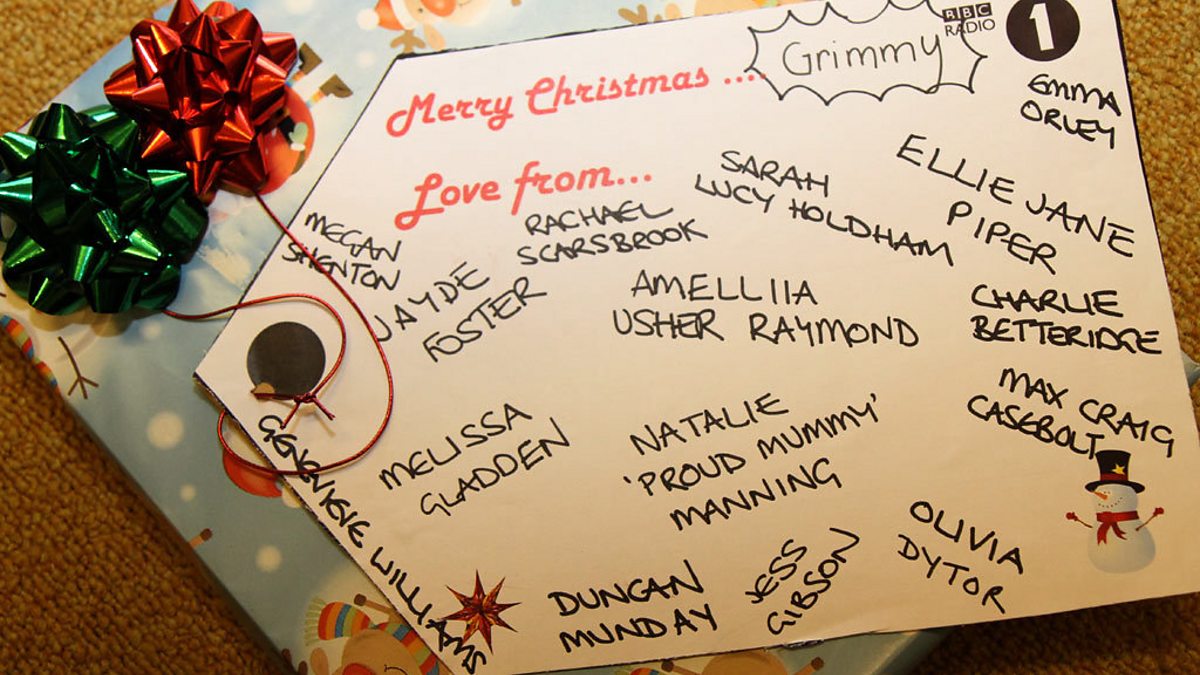 Merry Christmas ....
Grimmy
BBC
RADIO
1
EMMA
ORLEY
Love from...
SARAH
LUCY HOLDHAM
ELLIE JANE
PIPER
MEGAN
SHENTON
RACHAEL
SCARSBROOK
JAYDE
FOSTER
AMELLIIA
USHER RAYMOND
CHARLIE
BETTERIDGE
MAX CRAIG
CASEBOLT
MELISSA
GLADDEN
NATALIE
'PROUD MUMMY'
MANNING
GENEVIEVE WILLIAMS
DUNCAN
MUNDAY
JESS
GIBSON
OLIVIA
DYTOR